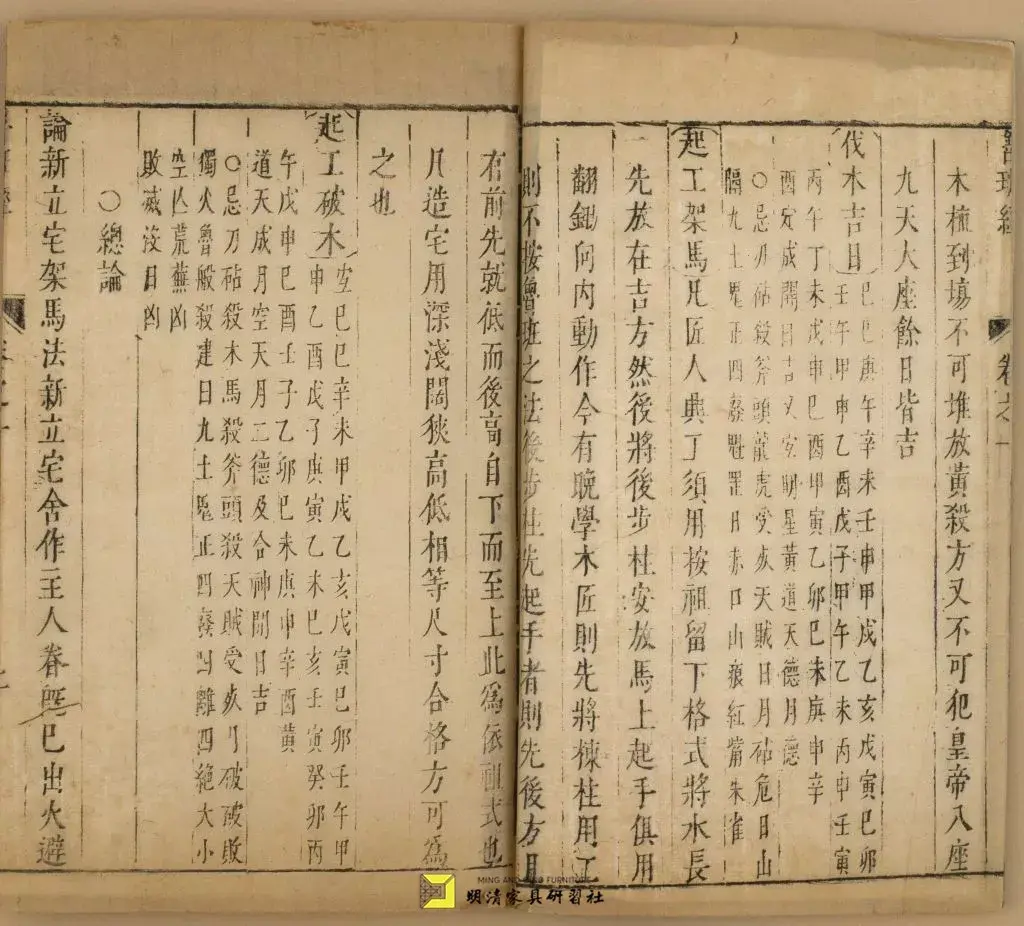 魯班經
卷之一
木植到塲不可堆放黃殺方又不可犯皇帝八座
九天大座餘日皆吉
伐木吉日
己巳庚午辛未壬申甲戌乙亥戊寅己卯
壬午甲申乙酉戊子甲午乙未丙申壬寅
丙午丁未戊申己酉甲寅乙卯己未庚申辛
酉定成開日吉又安明星黃道天德月德
○忌刀砧殺斧頭龍虎受死天賊日月砧危日山
隔九土鬼正四廢魁罡日赤口山痕紅觜朱雀
起工架馬凡匠人與工須用按祖留下格式將水長
先放在吉方然後將後步柱安放馬上起手俱用
翻鋤向內動作今有晚學木匠則先將棟柱用工
則不按魯班之法後步柱先起手者則先後方且
右前先就低而後高自下而至上此爲依祖式也
凡造宅用深淺闊狹高低相等尺寸合格方可爲
之也
起工破木
宜己巳辛未甲戌乙亥戊寅己卯壬午甲
申乙酉戊子庚寅乙未己亥壬寅癸卯丙
午戊申己酉壬子乙卯己未庚申辛酉黃
道天成月空天月二德及合神開日吉
○忌刀砧殺木馬殺斧頭殺天賊受死月破破敗
獨火魯般殺建日九土鬼正四廢四離四絕大小
空亡荒蕪凶
敗滅沒日凶
○總論
論新立宅架馬法新立宅舍作主人眷旣已出火避
MING AND QING FURNITURE
明清家具研習社